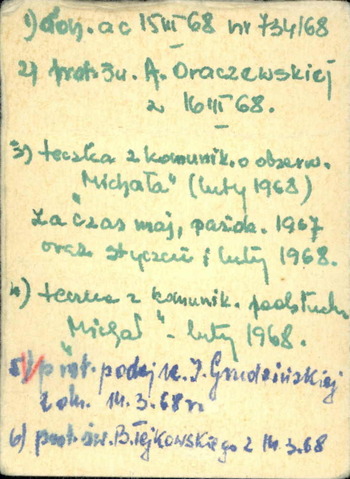 1) don. ac 15 III 68 nr 734/68
2) prot. św. A. Oraczewskiej
z 16 III 68.
3) teczka z komunik. o obserw.
"Michała" (luty 1968)
za czas maj, paźdz. 1967
oraz styczeń i luty 1968.
4) teczka z komunik. podsłuchu
"Michał" - luty 1968.
5) prot. podej. I. Grudzińskiej
z dn. 14.3.68 r.
6) prot. św. B. Tejkowskiego z 14.3.68